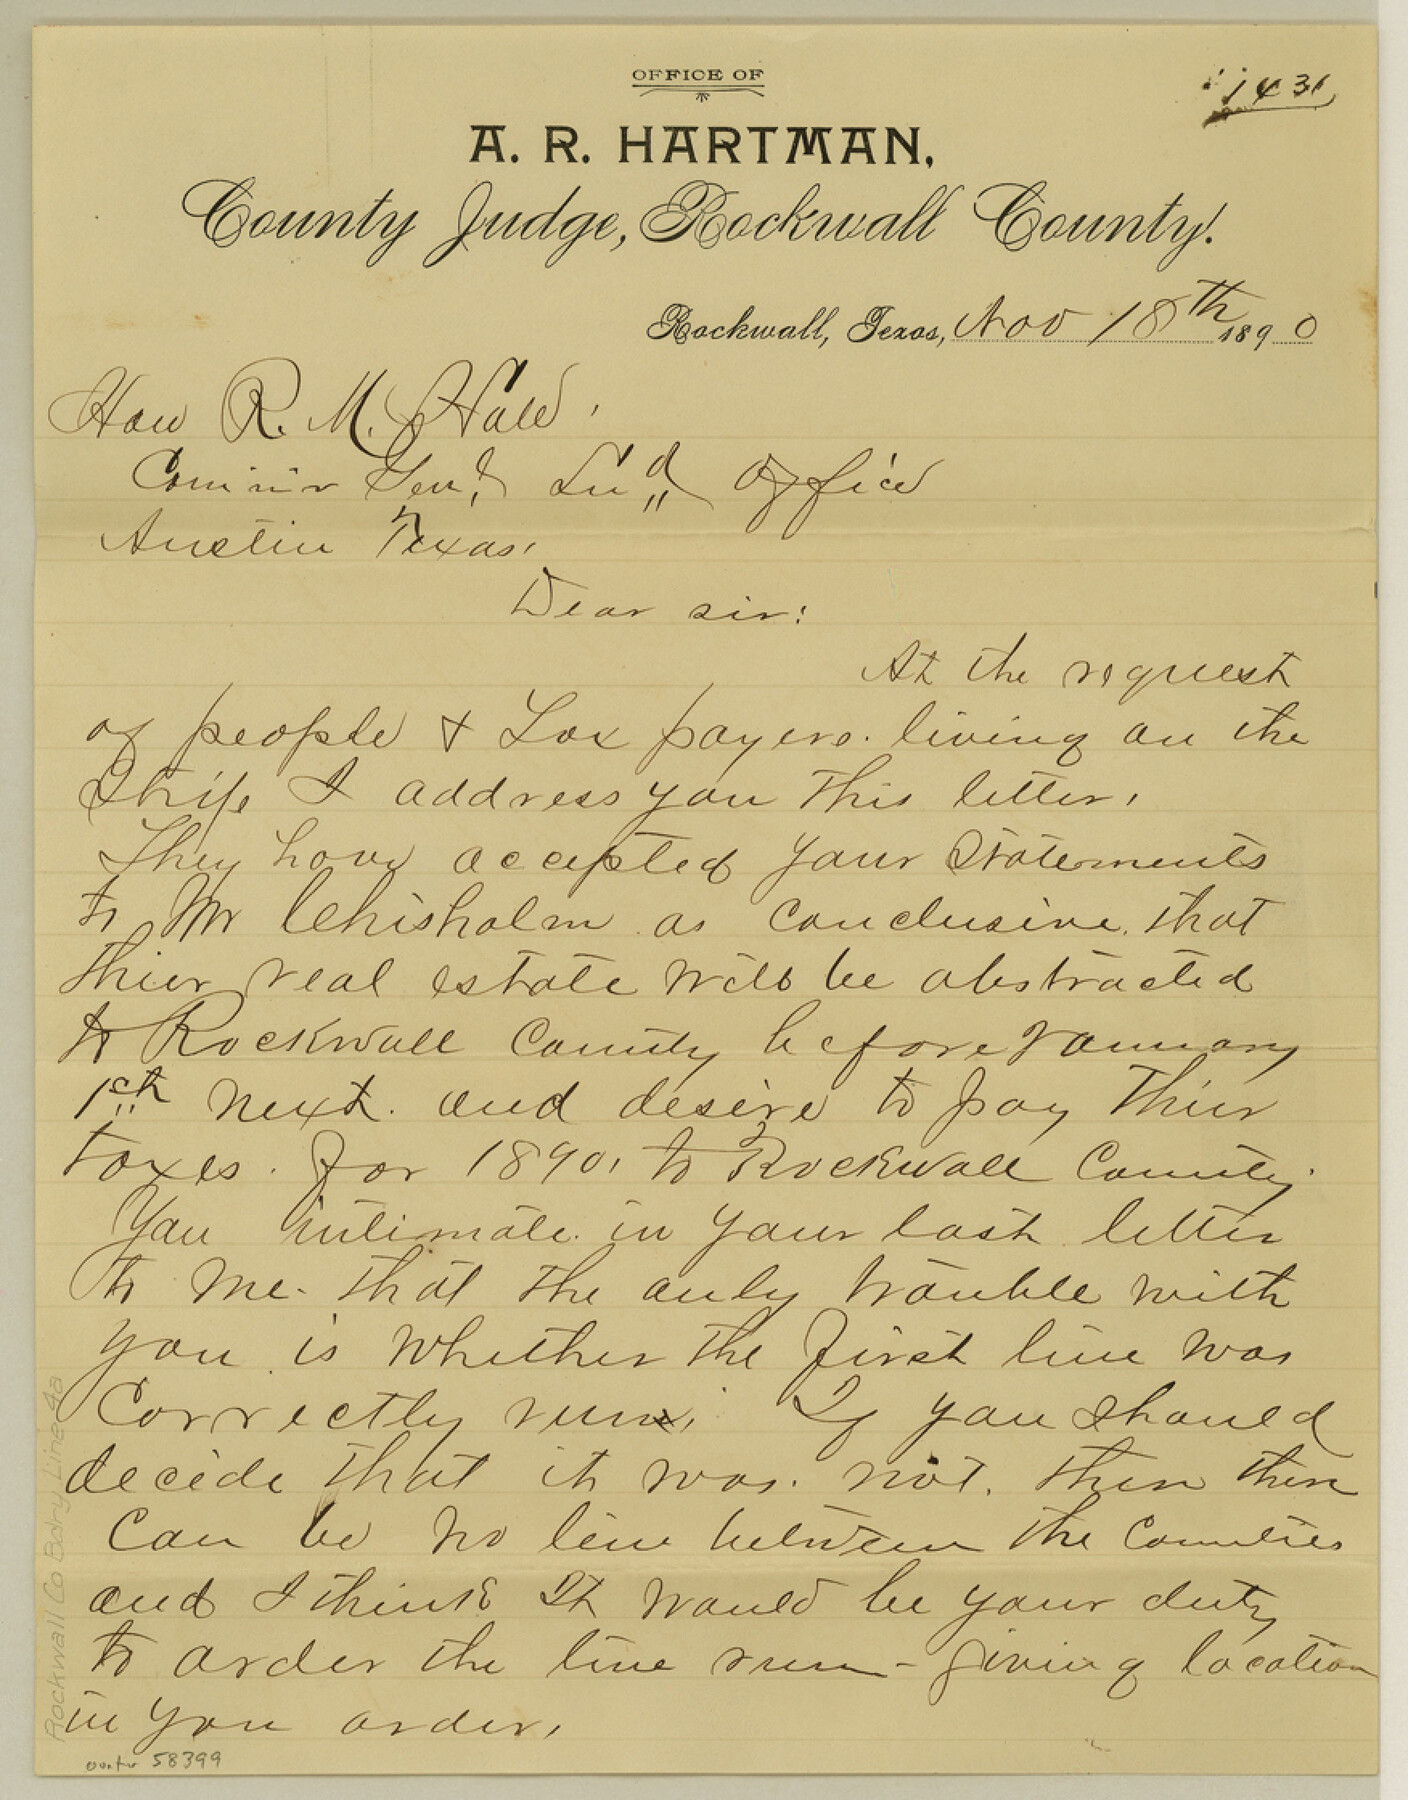 OFFICE OF
1431
A. R. HARTMAN,
County Judge, Rockwall County.
Rockwall, Texas, Nov 18th 1890
Hon R. M. Hall,
Com'r Genl Lnd Office
Austin Texas,
Dear sir:
At the request
of people & Tax payers. living on the
Strip I address you this letter,
They have accepted your Statements
to Mr Chisholm as conclusive. that
thier real estate will be abstracted
to Rockwall County before January
1st next. and desire to pay thier
taxes. for 1890, to Rockwall County.
You intimate. in your last letter
to me. that the only trouble with
you is whether the first line was
Correctly run, If you should
decide that it was. not. then there
can be no line between the Counties
and I think It would be your duty
to order the line run - giving location
in you order,
Rockwall Co Bdry Line 4a
counter 58399